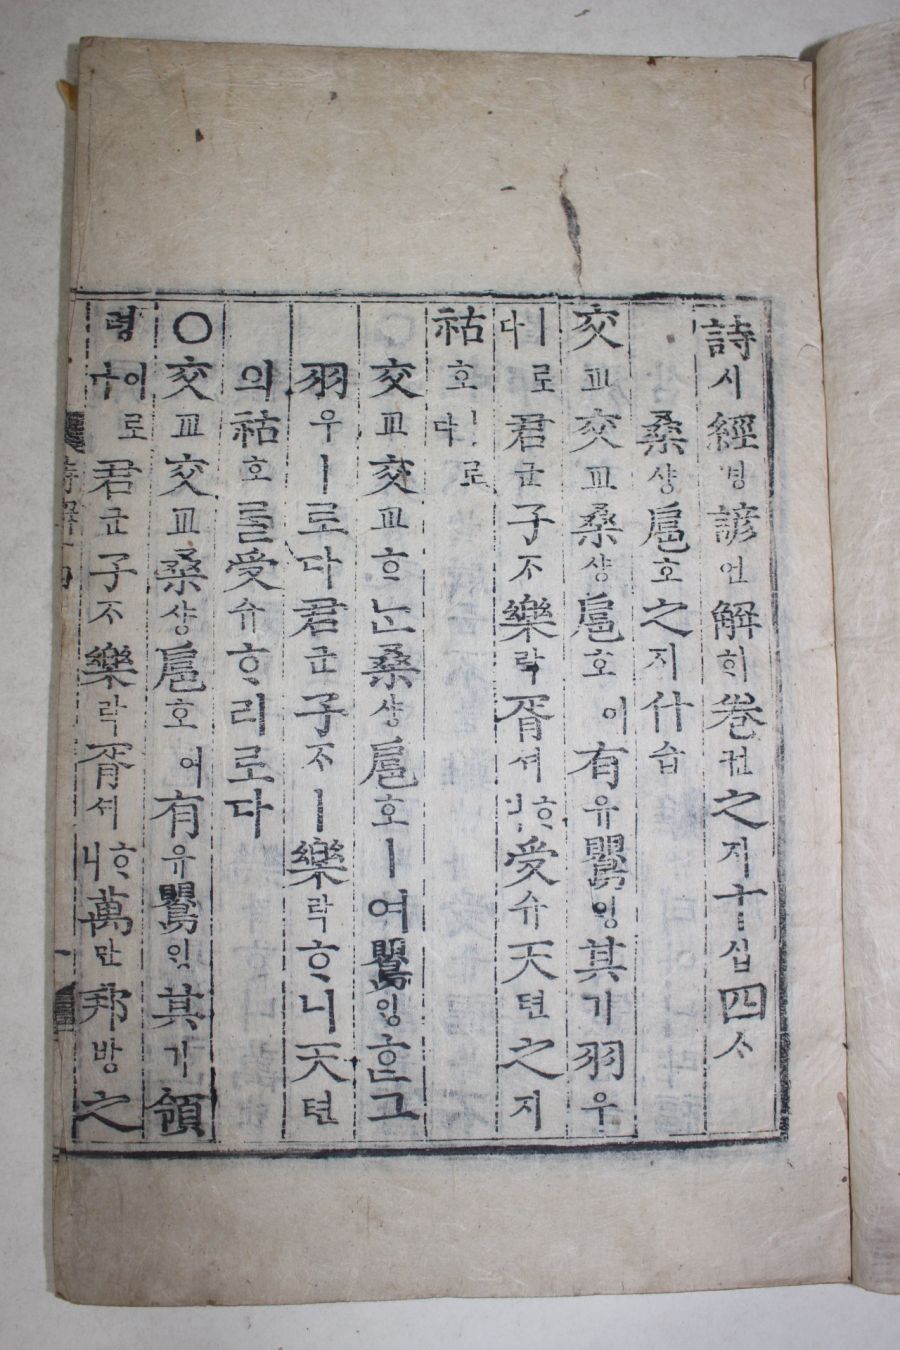 詩시經경諺언解ᄒᆡ卷권之지十십四ᄉᆞ
桑상扈호之지什습
交교交교桑상扈호이有유鶯ᄋᆡᆼ其기羽우
ㅣ로다君군子ᄌᆞ樂락胥셔ᄒᆞ니受슈天텬之지
祜호ㅣ로다
交교交교ᄒᆞᄂᆞᆫ桑상扈호ㅣ여鶯ᄋᆡᆼᄒᆞᆫ그
羽우ㅣ로다君군子ᄌᆞㅣ樂락ᄒᆞ니天텬
의祜호를受슈ᄒᆞ리로다
○交교交교桑상扈호여有유鶯ᄋᆡᆼ其기領
령이로다君군子ᄌᆞ樂락胥셔ᄒᆞ니萬만邦방之